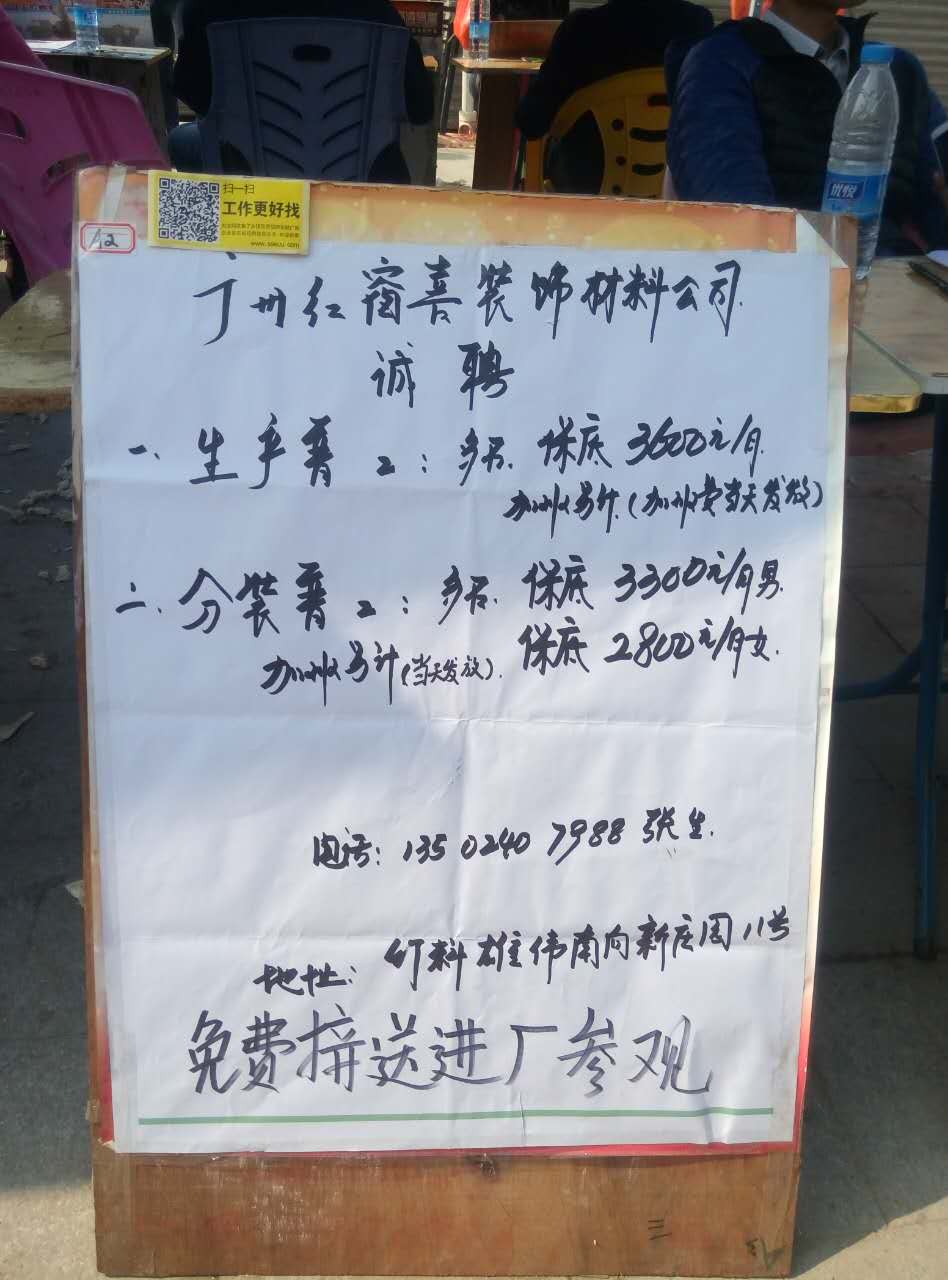 扫一扫
工作更好找
A2
广州红窗喜装饰材料公司
诚聘
一、生产普工：多名. 保底3600元/月.
加班另计.(加班费当天发放)
二、分装普工：多名. 保底3300元/月男.
保底2800元/月女.
加班另计(当天发放).
电话：135 0240 7988 张生.
地址：竹料雄伟南向新庄园11号
免费接送进厂参观
三